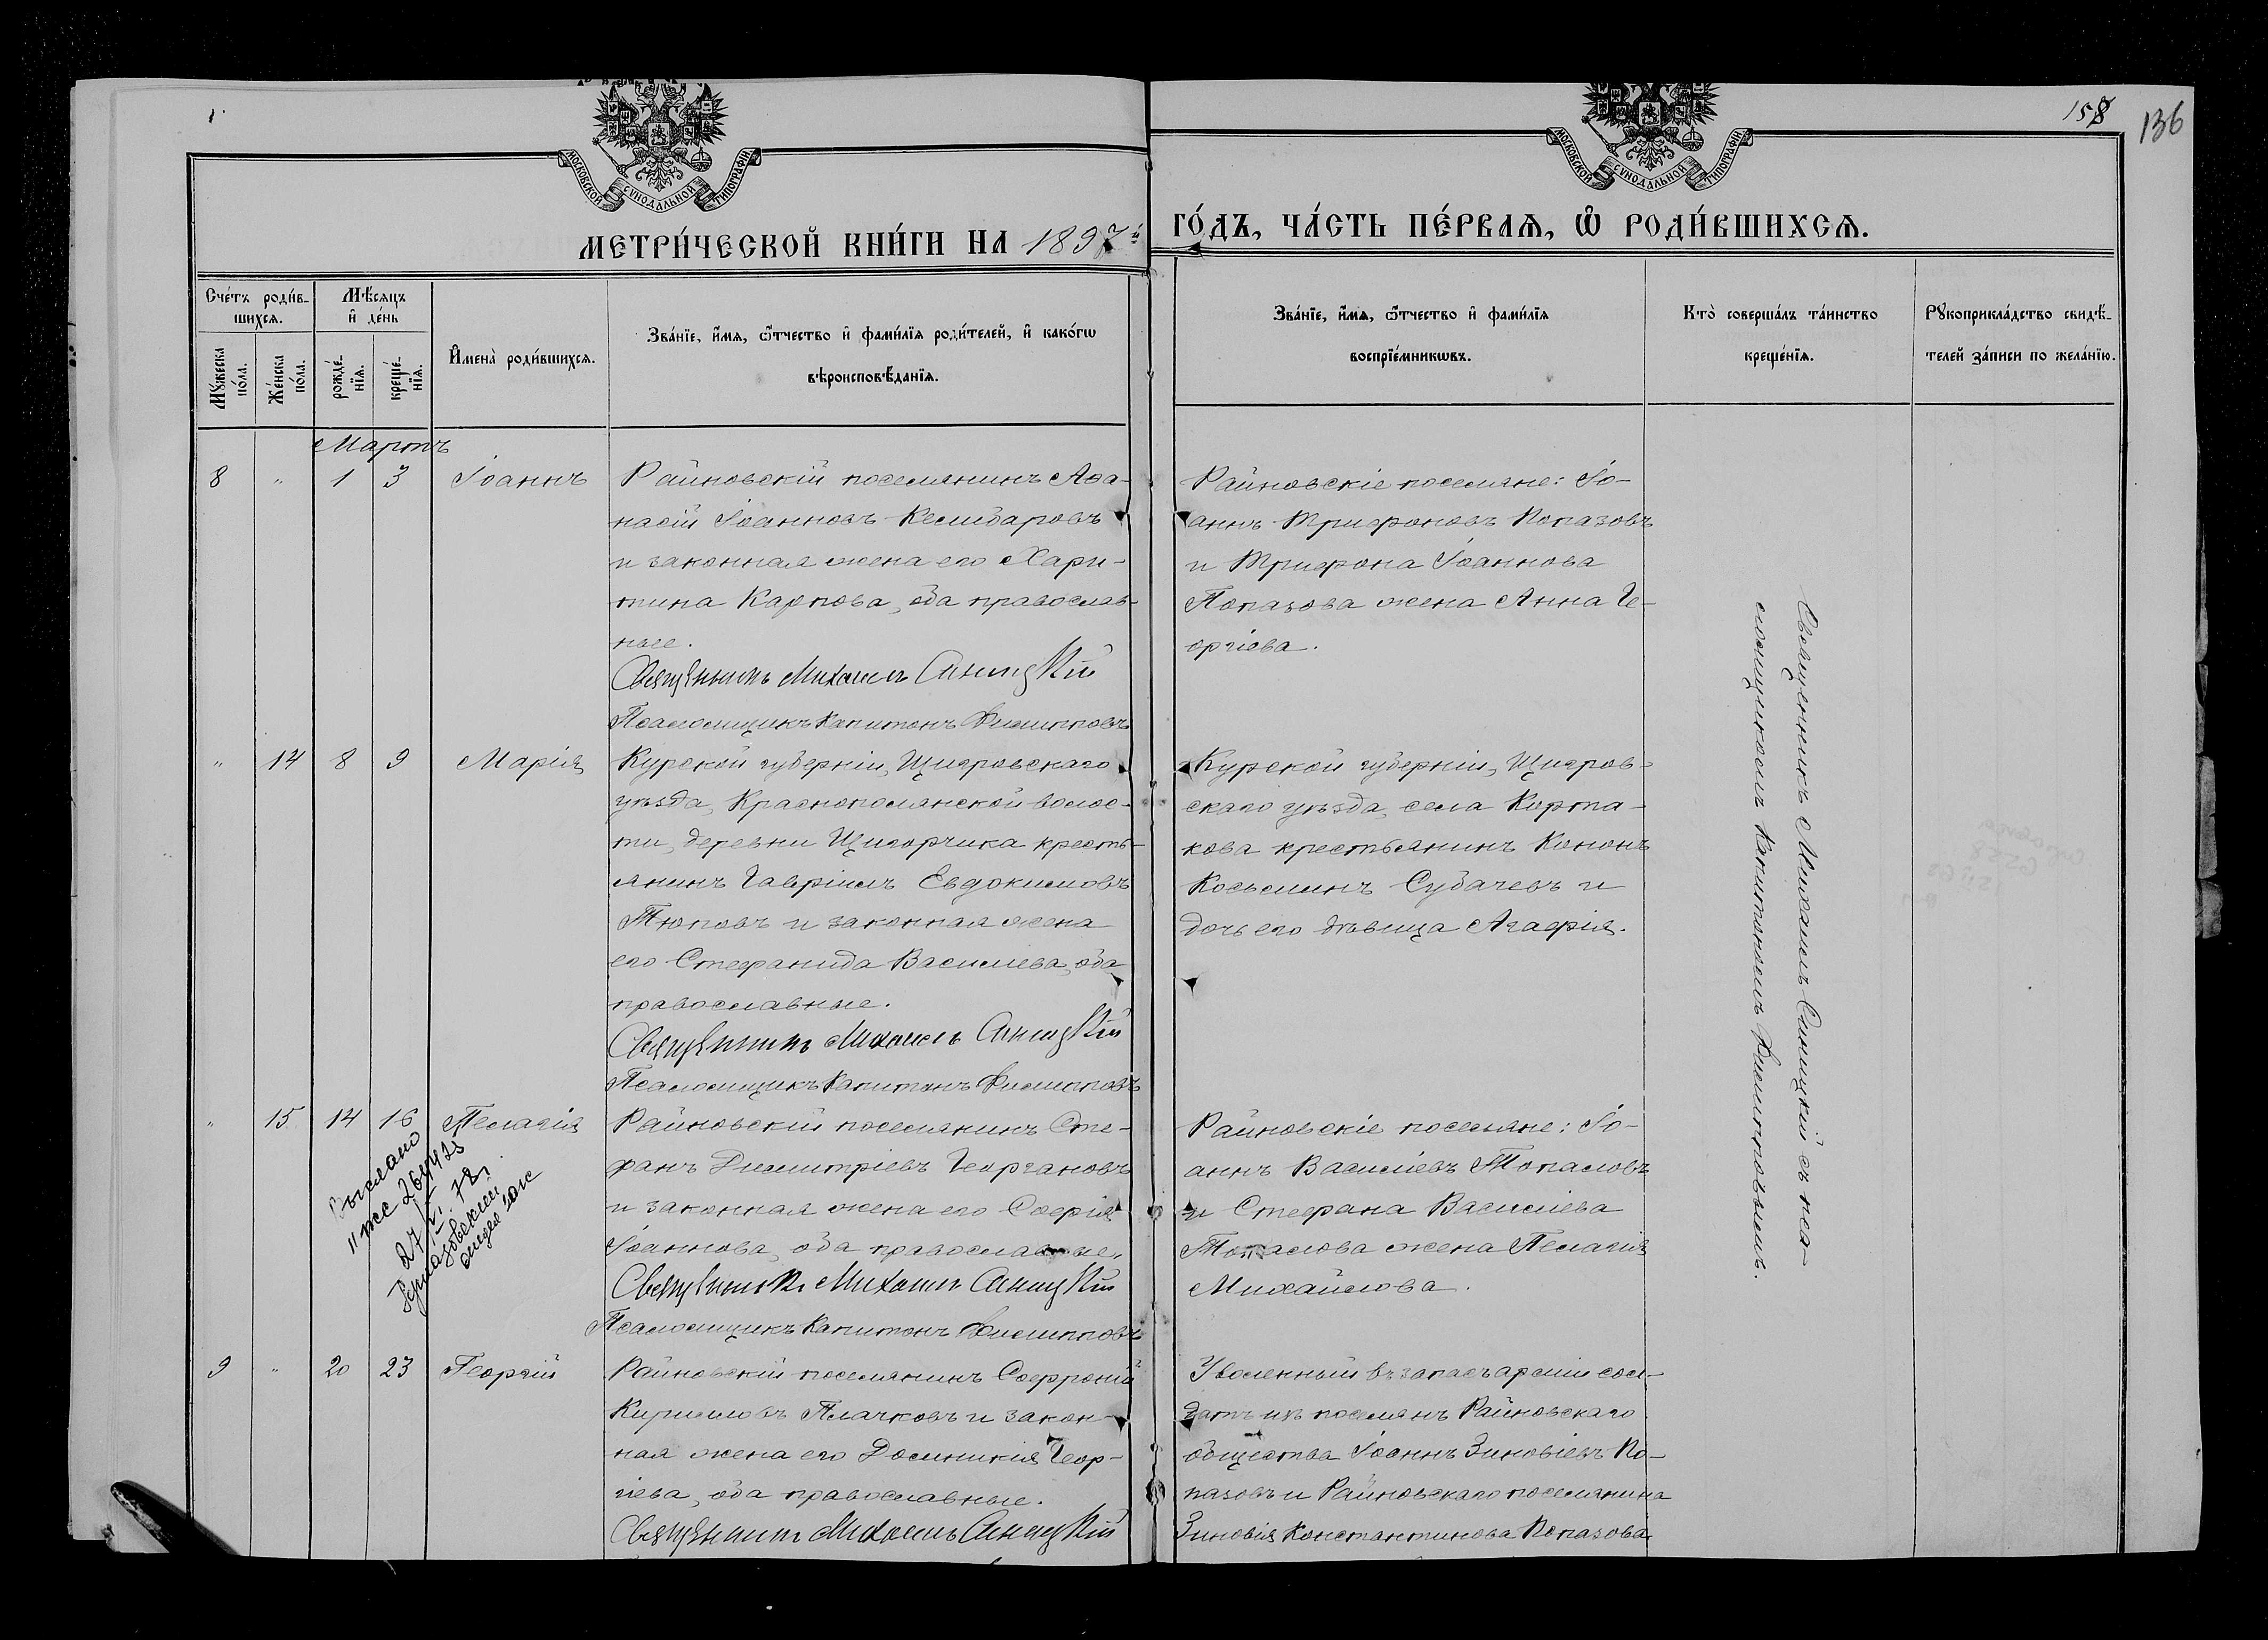 158
136
МОСКОВСКОЙ СѴНОДАЛЬНОЙ ТИПОГРАФІИ
МОСКОВСКОЙ СѴНОДАЛЬНОЙ ТИПОГРАФІИ
МЕТРИ́ЧЕСКОЙ КНИ́ГИ НА 1897й
ГО́ДЪ, ЧА́СТЬ ПЕ́РВАѦ, Ѡ҆ РОДИ́ВШИХСѦ.
Сче́тъ роди́в-
шихсѧ.
Мꙋ́жеска по́ла.
Же́нска по́ла.
Мѣ́сѧцъ
и҆ де́нь
рожде́-нїѧ.
креще́-нїѧ.
И҆мена̀ роди́вшихсѧ.
Зва́нїе, и҆́мѧ, ѻ҆́тчество и҆ фами́лїѧ роди́телей, и҆ како́гѡ
вѣроисповѣ́данїѧ.
Зва́нїе, и҆́мѧ, ѻ҆́тчество и҆ фами́лїѧ
воспрїе́мникѡвъ.
Кто̀ соверша́лъ та́инство
креще́нїѧ.
Рꙋкоприкла́дство свидѣ́-
телей за́писи по жела́нїю.
Мартъ
8 " 1 3 Іоаннъ
Райновскій поселянинъ Аѳа-
насій Іоанновъ Кесибаровъ
и законная жена его Хари-
тина Карпова, оба православ-
ные.
Священникъ Михаилъ Синицкій
Псаломщикъ Капитонъ Филипповъ
Райновскіе поселяне: Іо-
аннъ Трифоновъ Попазовъ
и Трифона Іоаннова
Попазова жена Анна Ге-
оргіева.
" 14 8 9 Марія
Курской губерніи, Щигровскаго
уѣзда, Краснополянской волос-
ти, деревни Щигорчика кресть-
янинъ Гавріилъ Евдокимовъ
Тюповъ и законная жена
его Стефанида Василіева, оба
православные.
Священникъ Михаилъ Синицкій
Псаломщикъ Капитонъ Филипповъ
Курской губерніи, Щигров-
скаго уѣзда, села Корта-
кова крестьянинъ Кононъ
Косьминъ Субачевъ и
дочь его дѣвица Агафія.
" 15 14 16 Пелагія
Райновскій поселянинъ Сте-
фанъ Димитріевъ Георгановъ
и законная жена его Софія
Іоаннова, оба православные.
Священникъ Михаилъ Синицкій
Псаломщикъ Капитонъ Филипповъ
Райновскіе поселяне: Іо-
аннъ Василіевъ Топаловъ
и Стефана Василіева
Топалова жена Пелагія
Михайлова.
Выслано
27
9 " 20 23 Георгій
Райновскій поселянинъ Софроній
Кирилловъ Плачковъ и закон-
ная жена его Домникія Геор-
гіева, оба православные.
Священникъ Михаилъ Синицкій
Уволенный въ запасъ арміи сол-
датъ изъ поселянъ Райновскаго
общества Іоаннъ Зиновіевъ По-
пазовъ и Райновскаго поселянина
Зиновія Константинова Попазова
Священникъ Михаилъ Синицкій съ пса-
ломщикомъ Капитономъ Филипповымъ.